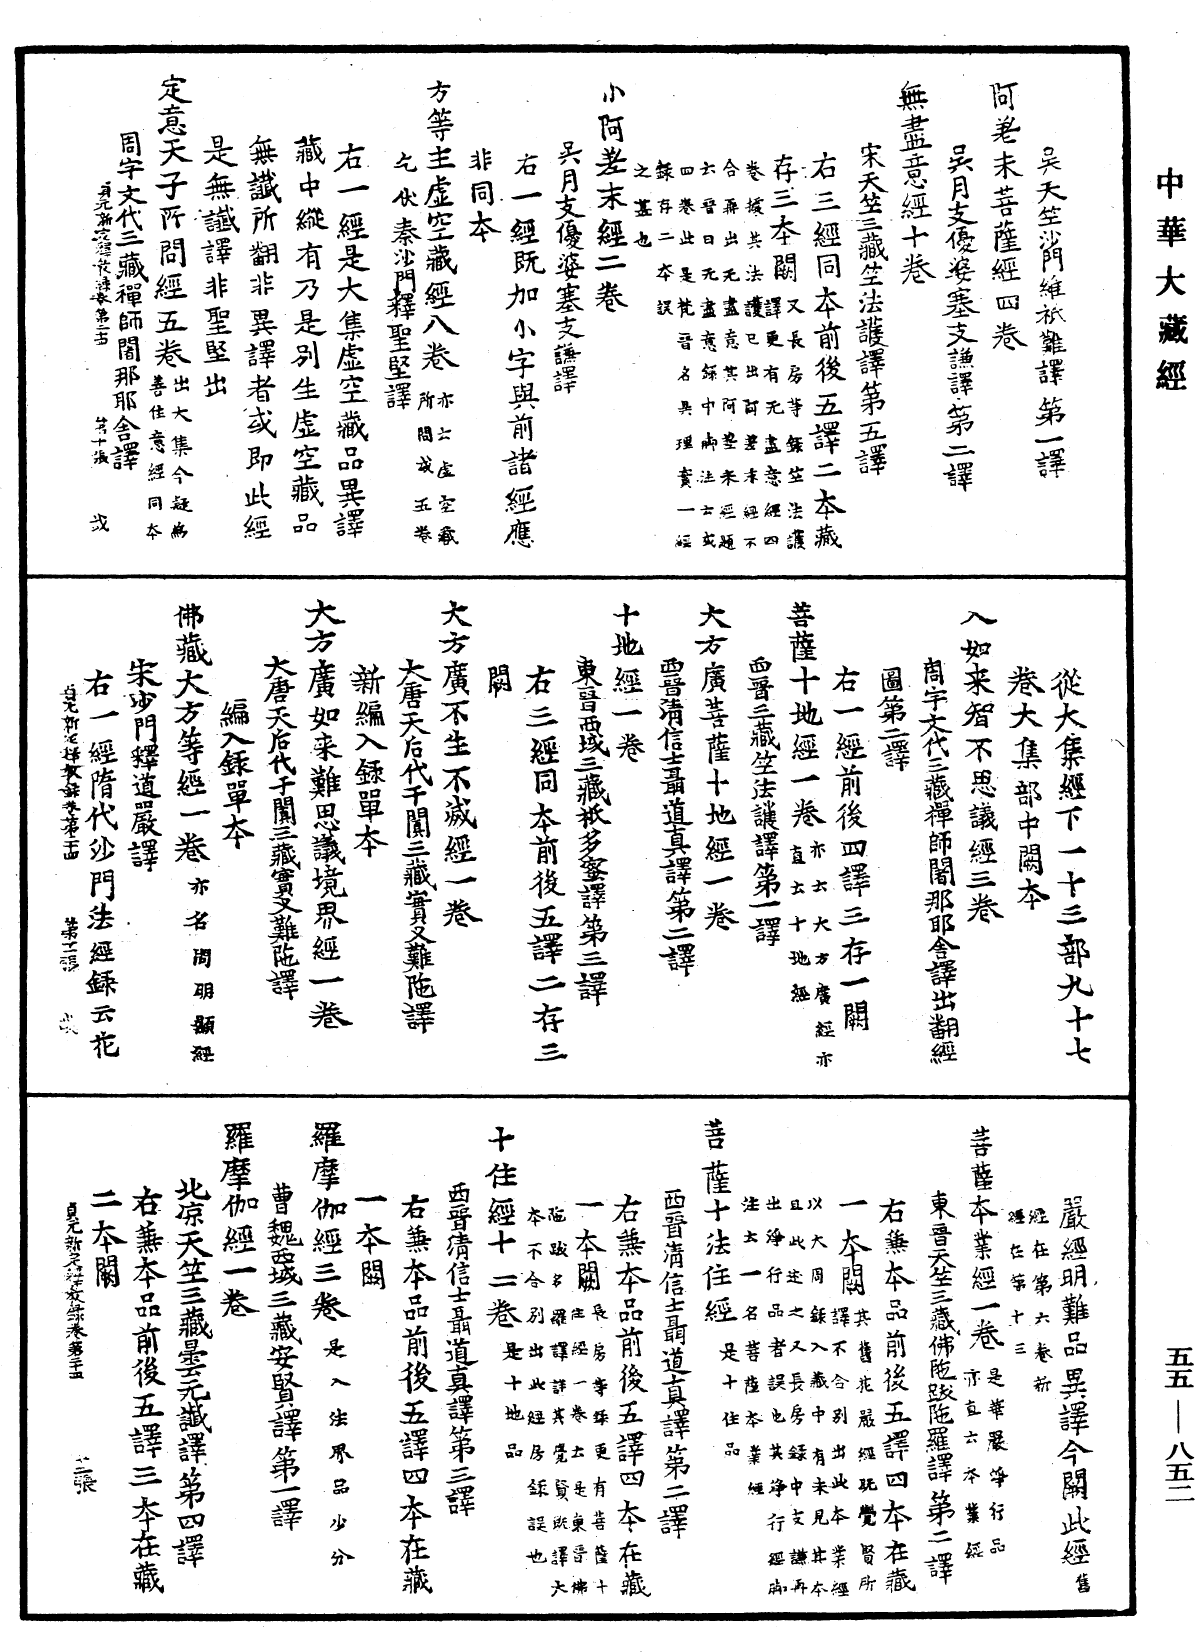 中華大藏經
吳天竺沙門維祇難譯第一譯
阿差末菩薩經四卷
吳月支優婆塞支謙譯第二譯
無盡意經十卷
宋天竺三藏竺法護譯第五譯
右三經同本前後五譯二本藏
存三本闕又長房等錄竺法護
譯更有無盡意經四
卷撿其法護已出阿差末經不
合再出無盡意其阿差末經題
六晉曰無盡意錄中脚注云或
四卷此是梵晉名異理實一經
錄存二本誤
之甚也
小阿差末經二卷
吳月支優婆塞支謙譯
右一經既加小字與前諸經應
非同本
方等主虛空藏經八卷亦云虛空藏
所問或五卷
乞伏秦沙門釋聖堅譯
右一經是大集虛空藏品異譯
藏中縱有乃是別生虛空藏品
無讖所翻非異譯者或即此經
是無讖譯非聖堅出
定意天子所問經五卷出大集今疑為
善住意經同本
周宇文代三藏禪師闍那耶舍譯
從大集經下一十三部九十七
卷大集部中闕本
入如来智不思議經三卷
周宇文代三藏禪師闍那耶舍譯出翻經
圖第二譯
右一經前後四譯三存一闕
菩薩十地經一卷亦云大方廣經亦
直云十地經
西晉三藏竺法護譯第一譯
大方廣菩薩十地經一卷
西晉清信士聶道真譯第二譯
十地經一卷
東晉西域三藏祇多蜜譯第三譯
右三經同本前後五譯二存三
闕
大方廣不生不滅經一卷
大唐天后代于闐三藏實叉難陁譯
新編入錄單本
大方廣如来難思議境界經一卷
大唐天后代于闐三藏實叉難陁譯
編入錄單本
佛藏大方等經一卷亦名問明顯經
宋沙門釋道嚴譯
右一經隋代沙門法經錄云花
嚴經明難品異譯今闕此經舊
經在第六卷新
經在第十三
菩薩本業經一卷是華嚴淨行品
亦直云本業經
東晉天竺三藏佛陁跋陁羅譯第二譯
右兼本品前後五譯四本在藏
一本闕其舊花嚴經既覺賢所
譯不合別出此本業經
以大周錄入藏中有未見其本
且此述之又長房錄中支謙再
出淨行品者誤也其淨行經脚
注云一名菩薩本業經
菩薩十法住經是十住品
西晉清信士聶道真譯第二譯
右兼本品前後五譯四本在藏
一本闕長房等錄更有菩薩十
住經一卷云是東晉佛
陁跋名羅譯詳其覺賢既譯大
本不合別出此經房錄誤也
十住經十二卷是十地品
西晉清信士聶道真譯第三譯
右兼本品前後五譯四本在藏
一本闕
羅摩伽經三卷是入法界品少分
曹魏西域三藏安賢譯第一譯
羅摩伽經一卷
北凉天竺三藏曇无讖譯第四譯
右兼本品前後五譯三本在藏
二本闕
五五—八五二